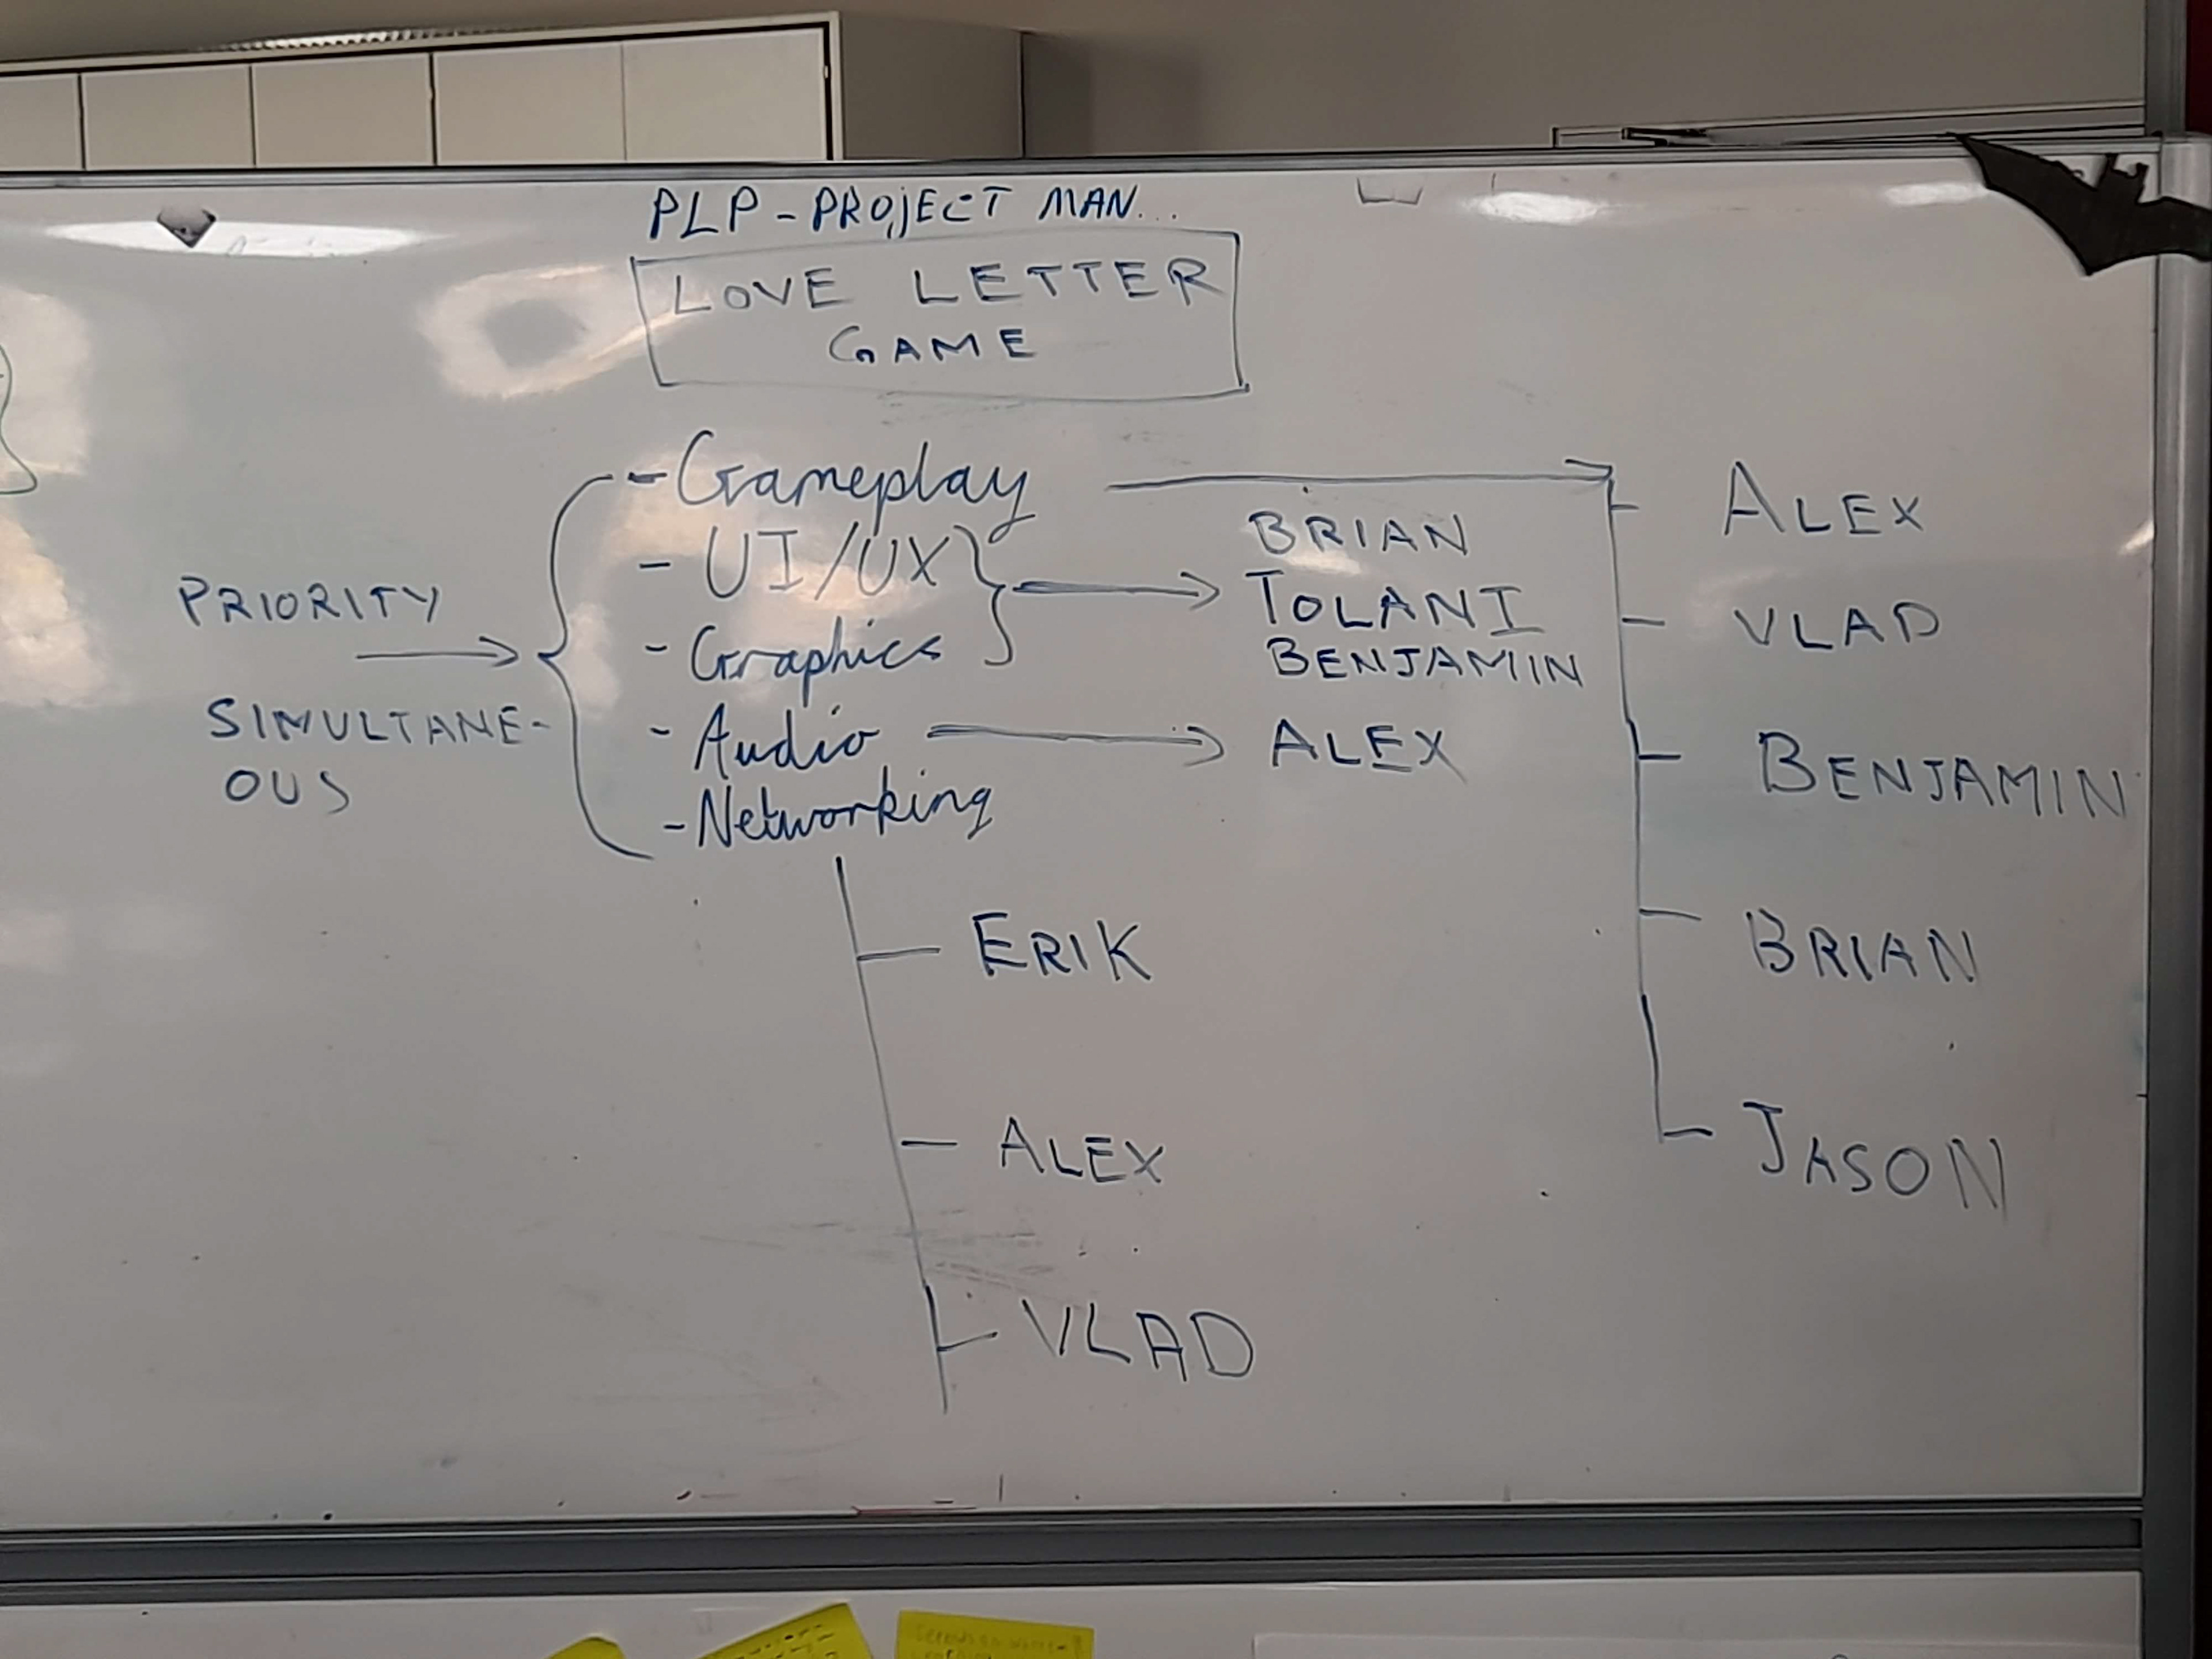 PLP - PROJECT MAN...
LOVE LETTER
GAME
PRIORITY
SIMULTANE-
OUS
- Gameplay
- UI/UX
- Graphics
- Audio
- Networking
BRIAN
TOLANI
BENJAMIN
ALEX
- ALEX
- VLAD
- BENJAMIN
- BRIAN
- JASON
- ERIK
- ALEX
- VLAD